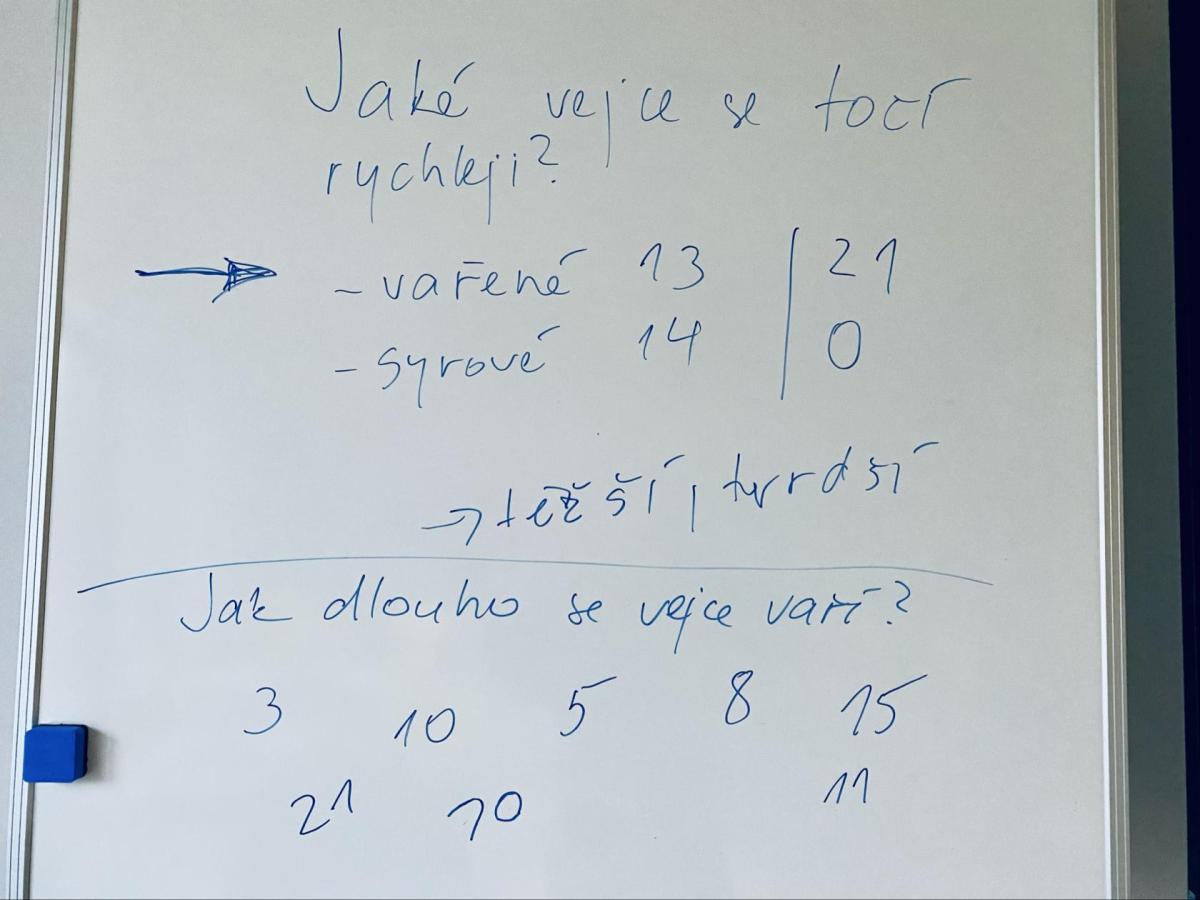 Jaké vejce se točí
rychleji?
→ - vařené 13 | 21
- syrové 14 | 0
→ těžší, tvrdší
Jak dlouho se vejce vaří?
3 10 5 8 15
21 10 11